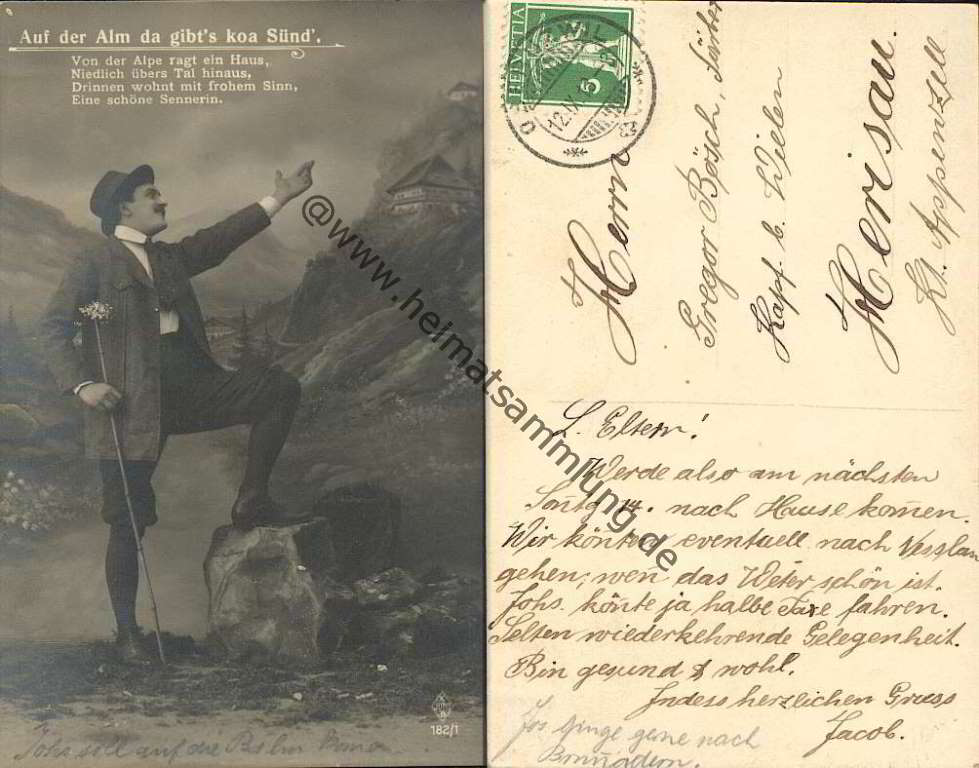 Auf der Alm da gibt's koa Sünd'.
Von der Alpe ragt ein Haus,
Niedlich übers Tal hinaus,
Drinnen wohnt mit frohem Sinn,
Eine schöne Sennerin.
182/1
Johs soll auf die
@www.heimatsammlung.de
HELVETIA
5
12.IX
Herrn
Gregor Bösch,
Kapf b.
Herisau.
Kt. Appenzell
L. Eltern!
Werde also am nächsten
Sontg 14. nach Hause komen.
Wir könten eventuell nach
gehen, wen das Weter schön ist.
Johs. könte ja halbe Taxe fahren.
Selten wiederkehrende Gelegenheit.
Bin gesund & wohl.
Indess herzlichen Gruss
Jacob.
Jos ginge gerne nach